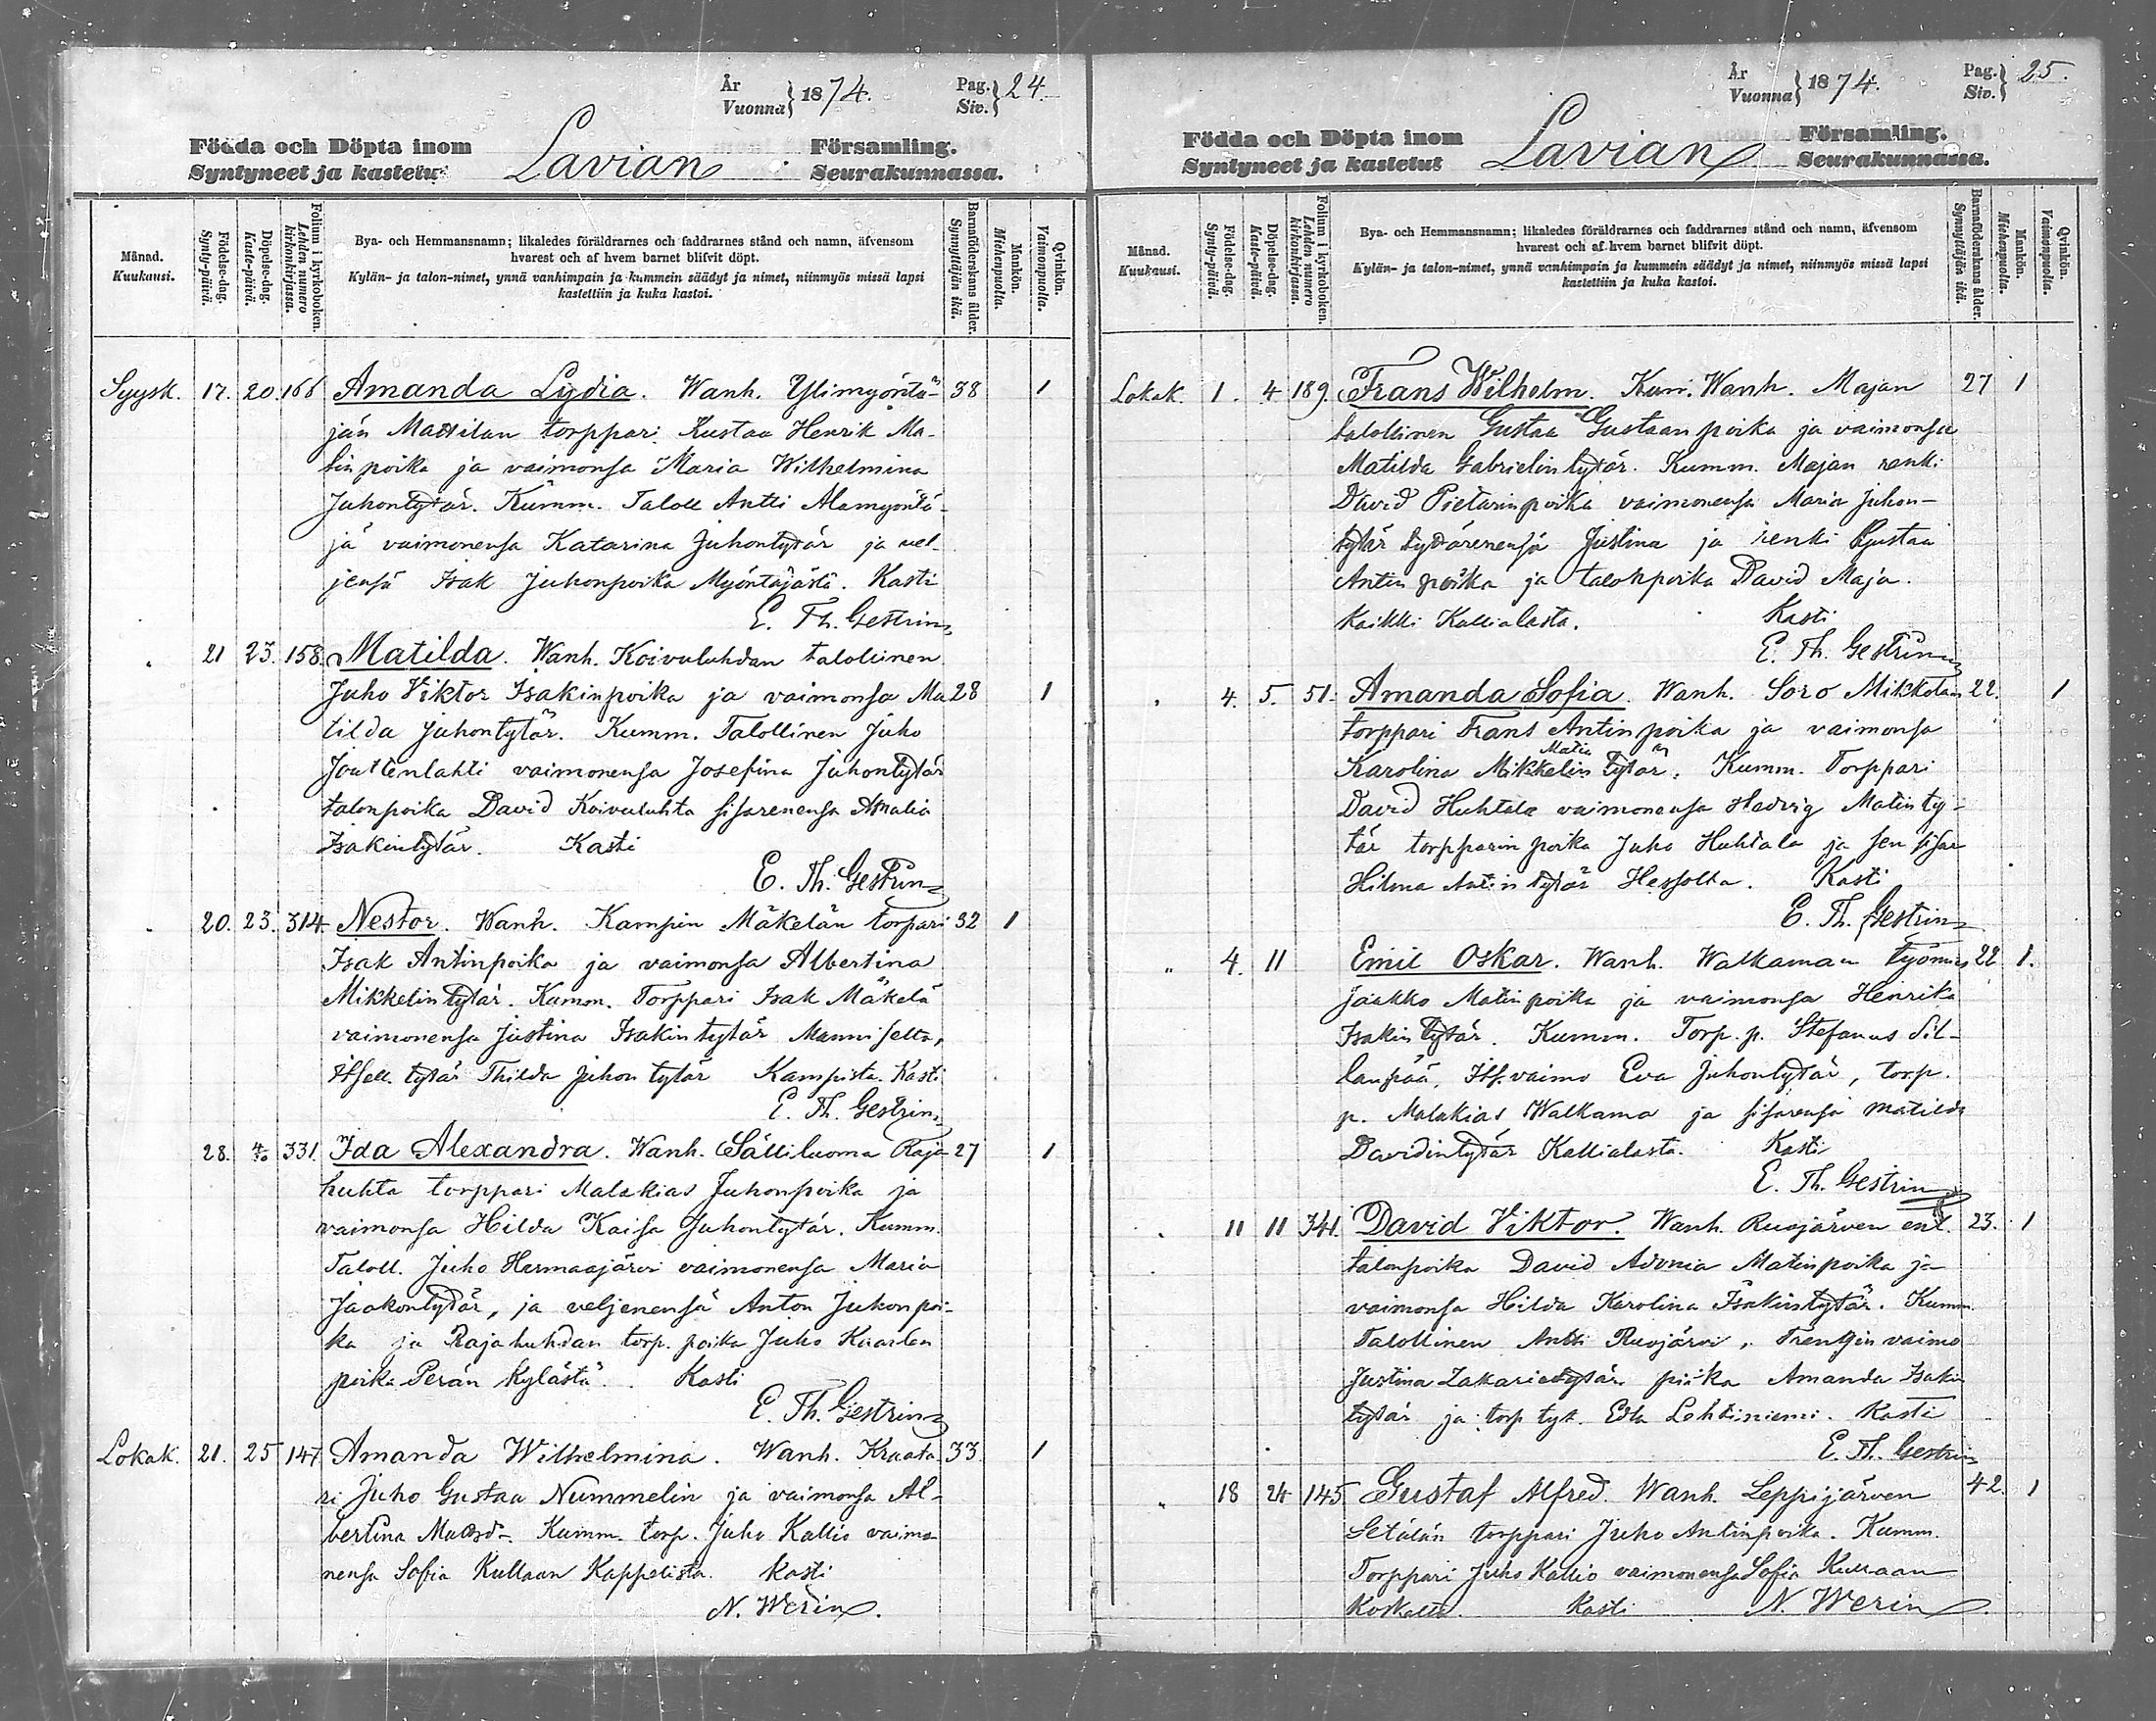 År
Vuonna } 1874.
Pag.
Siv. } 24.
Födda och Döpta inom Lavian Församling.
Syntyneet ja kastetut Seurakunnassa.
Månad.
Kuukausi.
Födelse-dag.
Synty-päivä.
Döpelse-dag.
Kaste-päivä.
Folium i kyrkoboken.
Lehden numero kirkonkirjassa.
Bya- och Hemmansnamn; likaledes föräldrarnes och faddrarnes stånd och namn, äfvensom
hvarest och af hvem barnet blifvit döpt.
Kylän- ja talon-nimet, ynnä vanhimpain ja kummein säädyt ja nimet, niinmyös missä lapsi
kastettiin ja kuka kastoi.
Barnaföderskans ålder.
Synnyttäjän ikä.
Mankön.
Miehenpuolia.
Qvinkön.
Vaimonpuolia.
Syysk. 17. 20. 166 Amanda Lydia. Wanh. Ylimyöntä- 38 1
jän Mattilan torppari Kustaa Henrik Ma-
tinpoika ja vaimonsa Maria Wilhelmina
Juhontytär. Kumm. Taloll Antti Alamyöntä-
jä vaimonensa Katarina Juhontytär ja vel-
jensä Isak Juhonpoika Myöntäjästä. Kasti
E. Th. Gestrin
21 23. 158. Matilda. Wanh. Koivuluhdan talollinen
Juho Viktor Isakinpoika ja vaimonsa Ma 28 1
tilda Juhontytär. Kumm. Talollinen Juho
Jouttenlahti vaimonensa Josefina Juhontytär
talonpoika David Koivuluhta sisarenensa Amalia
Isakintytär. Kasti
E. Th. Gestrin
20. 23. 314. Nestor. Wanh. Kampin Mäkelän torpari 32 1
Isak Antinpoika ja vaimonsa Albertina
Mikkelintytär. Kumm. Torppari Isak Mäkelä
vaimonensa Justina Isakintytär Manniselta,
itsell. tytär Thilda Juhontytär Kampista. Kasti
E. Th. Gestrin
28. 4/10 331. Ida Alexandra. Wanh. Sälliluoma Raja- 27 1
huhta torppari Malakias Juhonpoika ja
vaimonsa Hilda Kaisa Juhontytär. Kumm.
Taloll. Juho Harmaajärvi vaimonensa Maria
Jaakontytär, ja veljenensä Anton Juhonpoi-
ka ja Rajahuhdan torp. poika Juho Kaarlen
poika Perän kylästä. Kasti
E. Th. Gestrin
Lokak. 21. 25 147 Amanda Wilhelmina. Wanh. Kraata 33. 1
ri Juho Gustaa Nummelin ja vaimonsa Al-
bertina Kumm. torp. Juho Kallio vaimo-
nensa Sofia Kullaan Kappelista. Kasti
N. Werin.
År
Vuonna } 1874.
Pag.
Siv. } 25.
Födda och Döpta inom Lavian Församling.
Syntyneet ja kastetut Seurakunnassa.
Månad.
Kuukausi.
Födelse-dag.
Synty-päivä.
Döpelse-dag.
Kaste-päivä.
Folium i kyrkoboken.
Lehden numero kirkonkirjassa.
Bya- och Hemmansnamn; likaledes föräldrarnes och faddrarnes stånd och namn, äfvensom
hvarest och af hvem barnet blifvit döpt.
Kylän- ja talon-nimet, ynnä vanhimpain ja kummein säädyt ja nimet, niinmyös missä lapsi
kastettiin ja kuka kastoi.
Barnaföderskans ålder.
Synnyttäjän ikä.
Mankön.
Miehenpuolia.
Qvinkön.
Vaimonpuolia.
Lokak. 1. 4 189. Frans Wilhelm. Wanh. Majan 27 1
talollinen Gustaa Gustaanpoika ja vaimonsa
Matilda Gabrielintytär. Kumm. Majan renki
David Pietarinpoika vaimonensa Maria Juhon-
tytär tytärenensä Justina ja renki Gustaa
Antinpoika ja talonpoika David Maja.
kaikki Kallialasta. Kasti
E. Th. Gestrin
4. 5. 51. Amanda Sofia. Wanh. Soro Mikkolan 22. 1
torppari Frans Antinpoika ja vaimonsa
Matin
Karolina Mikkelintytär. Kumm. Torppari
David Huhtala vaimonensa Hedvig Matinty-
tär torpparin poika Juho Huhtala ja sen sisar
Hilma Antintytär Hessolta. Kasti
E. Th. Gestrin
" 4. 11 Emil Oskar. Wanh. Walkaman työmies 22 1.
Jaakko Matinpoika ja vaimonsa Henrika
Isakintytär. Kumm. Torp. p. Stefanus Sil-
lanpää, Its. vaimo Eva Juhontytär, torp.
p. Malakias Walkama ja sisarensa Matilda
Davidintytär Kallialasta. Kasti
E. Th. Gestrin
11 11 341. David Viktor. Wanh. Ruojärven ent. 23. 1
talonpoika David Adonia Matinpoika ja
vaimonsa Hilda Karolina Isakintytär. Kumm.
Talollinen Antti Ruojärvi, Trengin vaimo
Justina Zakariantytär piika Amanda Isakin
tytär ja torp tyt. Edla Lehtiniemi. Kasti
E. Th. Gestrin
" 18 24 145 Gustaf Alfred. Wanh. Leppijärven 42. 1
Setälän torppari Juho Antinpoika. Kumm.
Torppari Juho Kallio vaimonensa Sofia Kullaan
Koskelta. Kasti N. Werin.